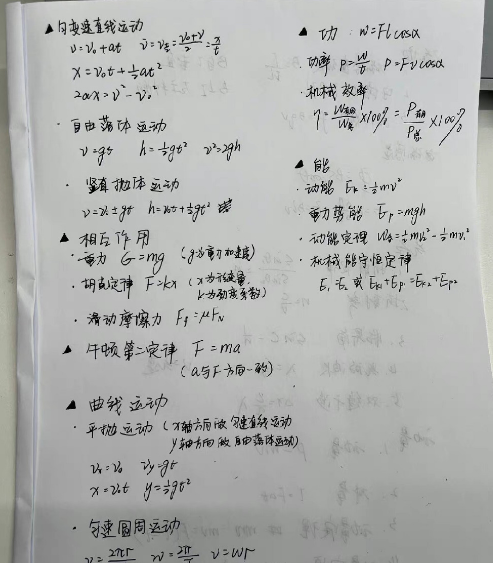 ▲匀变速直线运动
v=v₀+at  v̄=v_{t/2}=(v₀+v)/2=x/t
x=v₀t+½at²
2ax=v²-v₀²
· 自由落体运动
v=gt  h=½gt²  v²=2gh
· 竖直抛体运动
v=v₀±gt  h=v₀t±½gt²
▲ 相互作用
· 重力 G=mg (g为重力加速度)
· 胡克定律 F=kx (x为形变量,
k为劲度系数)
· 滑动摩擦力 F_f=μF_N
▲ 牛顿第二定律 F=ma
(a与F方向一致)
▲ 曲线运动
· 平抛运动 (x轴方向做匀速直线运动
y轴方向做自由落体运动)
v₀=v₀  v_y=gt
x=v₀t  y=½gt²
· 匀速圆周运动
v=2πr  w=2π  v=wr
▲ 功: W=Flcosα
· 功率 P=W/t  P=Fvcosα
· 机械效率
η=W有用/W总×100%=P有用/P总×100%
▲ 能
· 动能 E_k=½mv²
· 重力势能 E_p=mgh
· 动能定理 =½mv₂²-½mv₁²
· 机械能守恒定律
E₁=E₂ 或 E_{k1}+E_{p1}=E_{k2}+E_{p2}